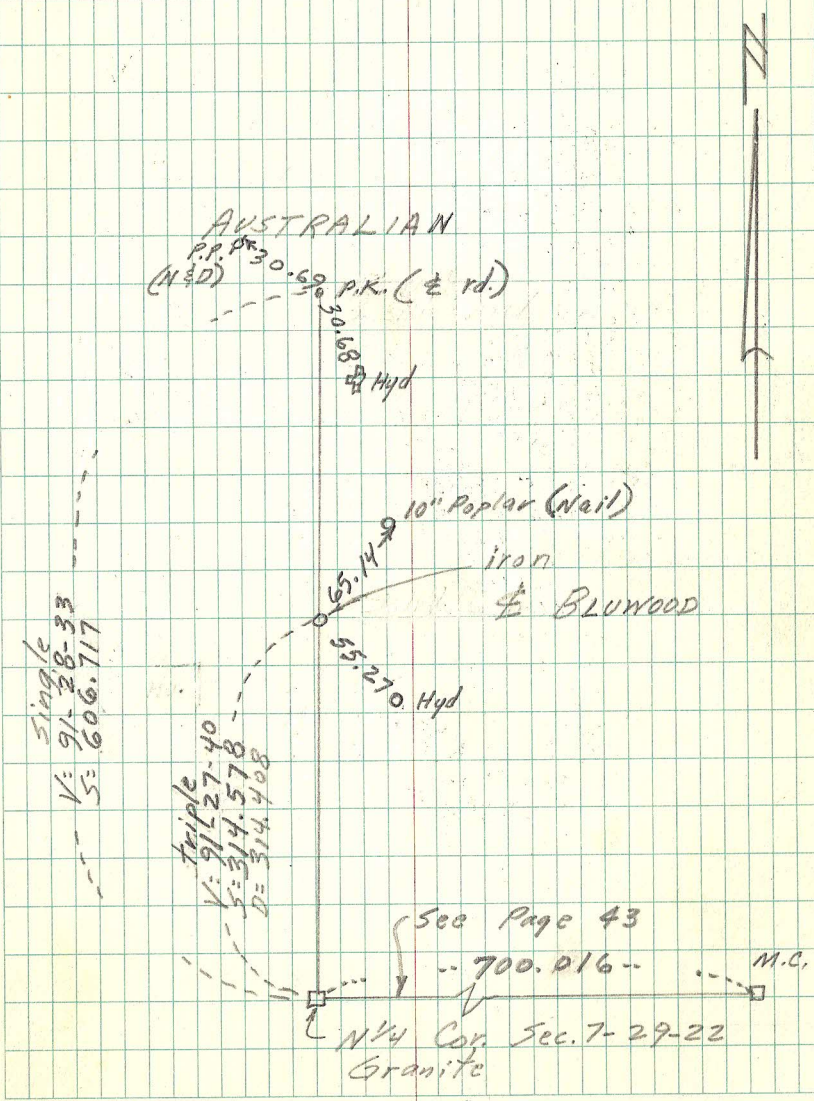 N
AUSTRALIAN
P.P. PK 30.60
(N&D)
P.K. (℄ rd.)
30.68
Hyd
10" Poplar (Nail)
65.14
iron
℄ BLUWOOD
55.27
Hyd
single
V= 91-28-33
S= 606.717
triple
V= 91-27-40
S= 314.578
D= 314.408
See Page 43
-- 700.016 --
M.C.
N 1/4 Cor. Sec. 7-29-22
Granite